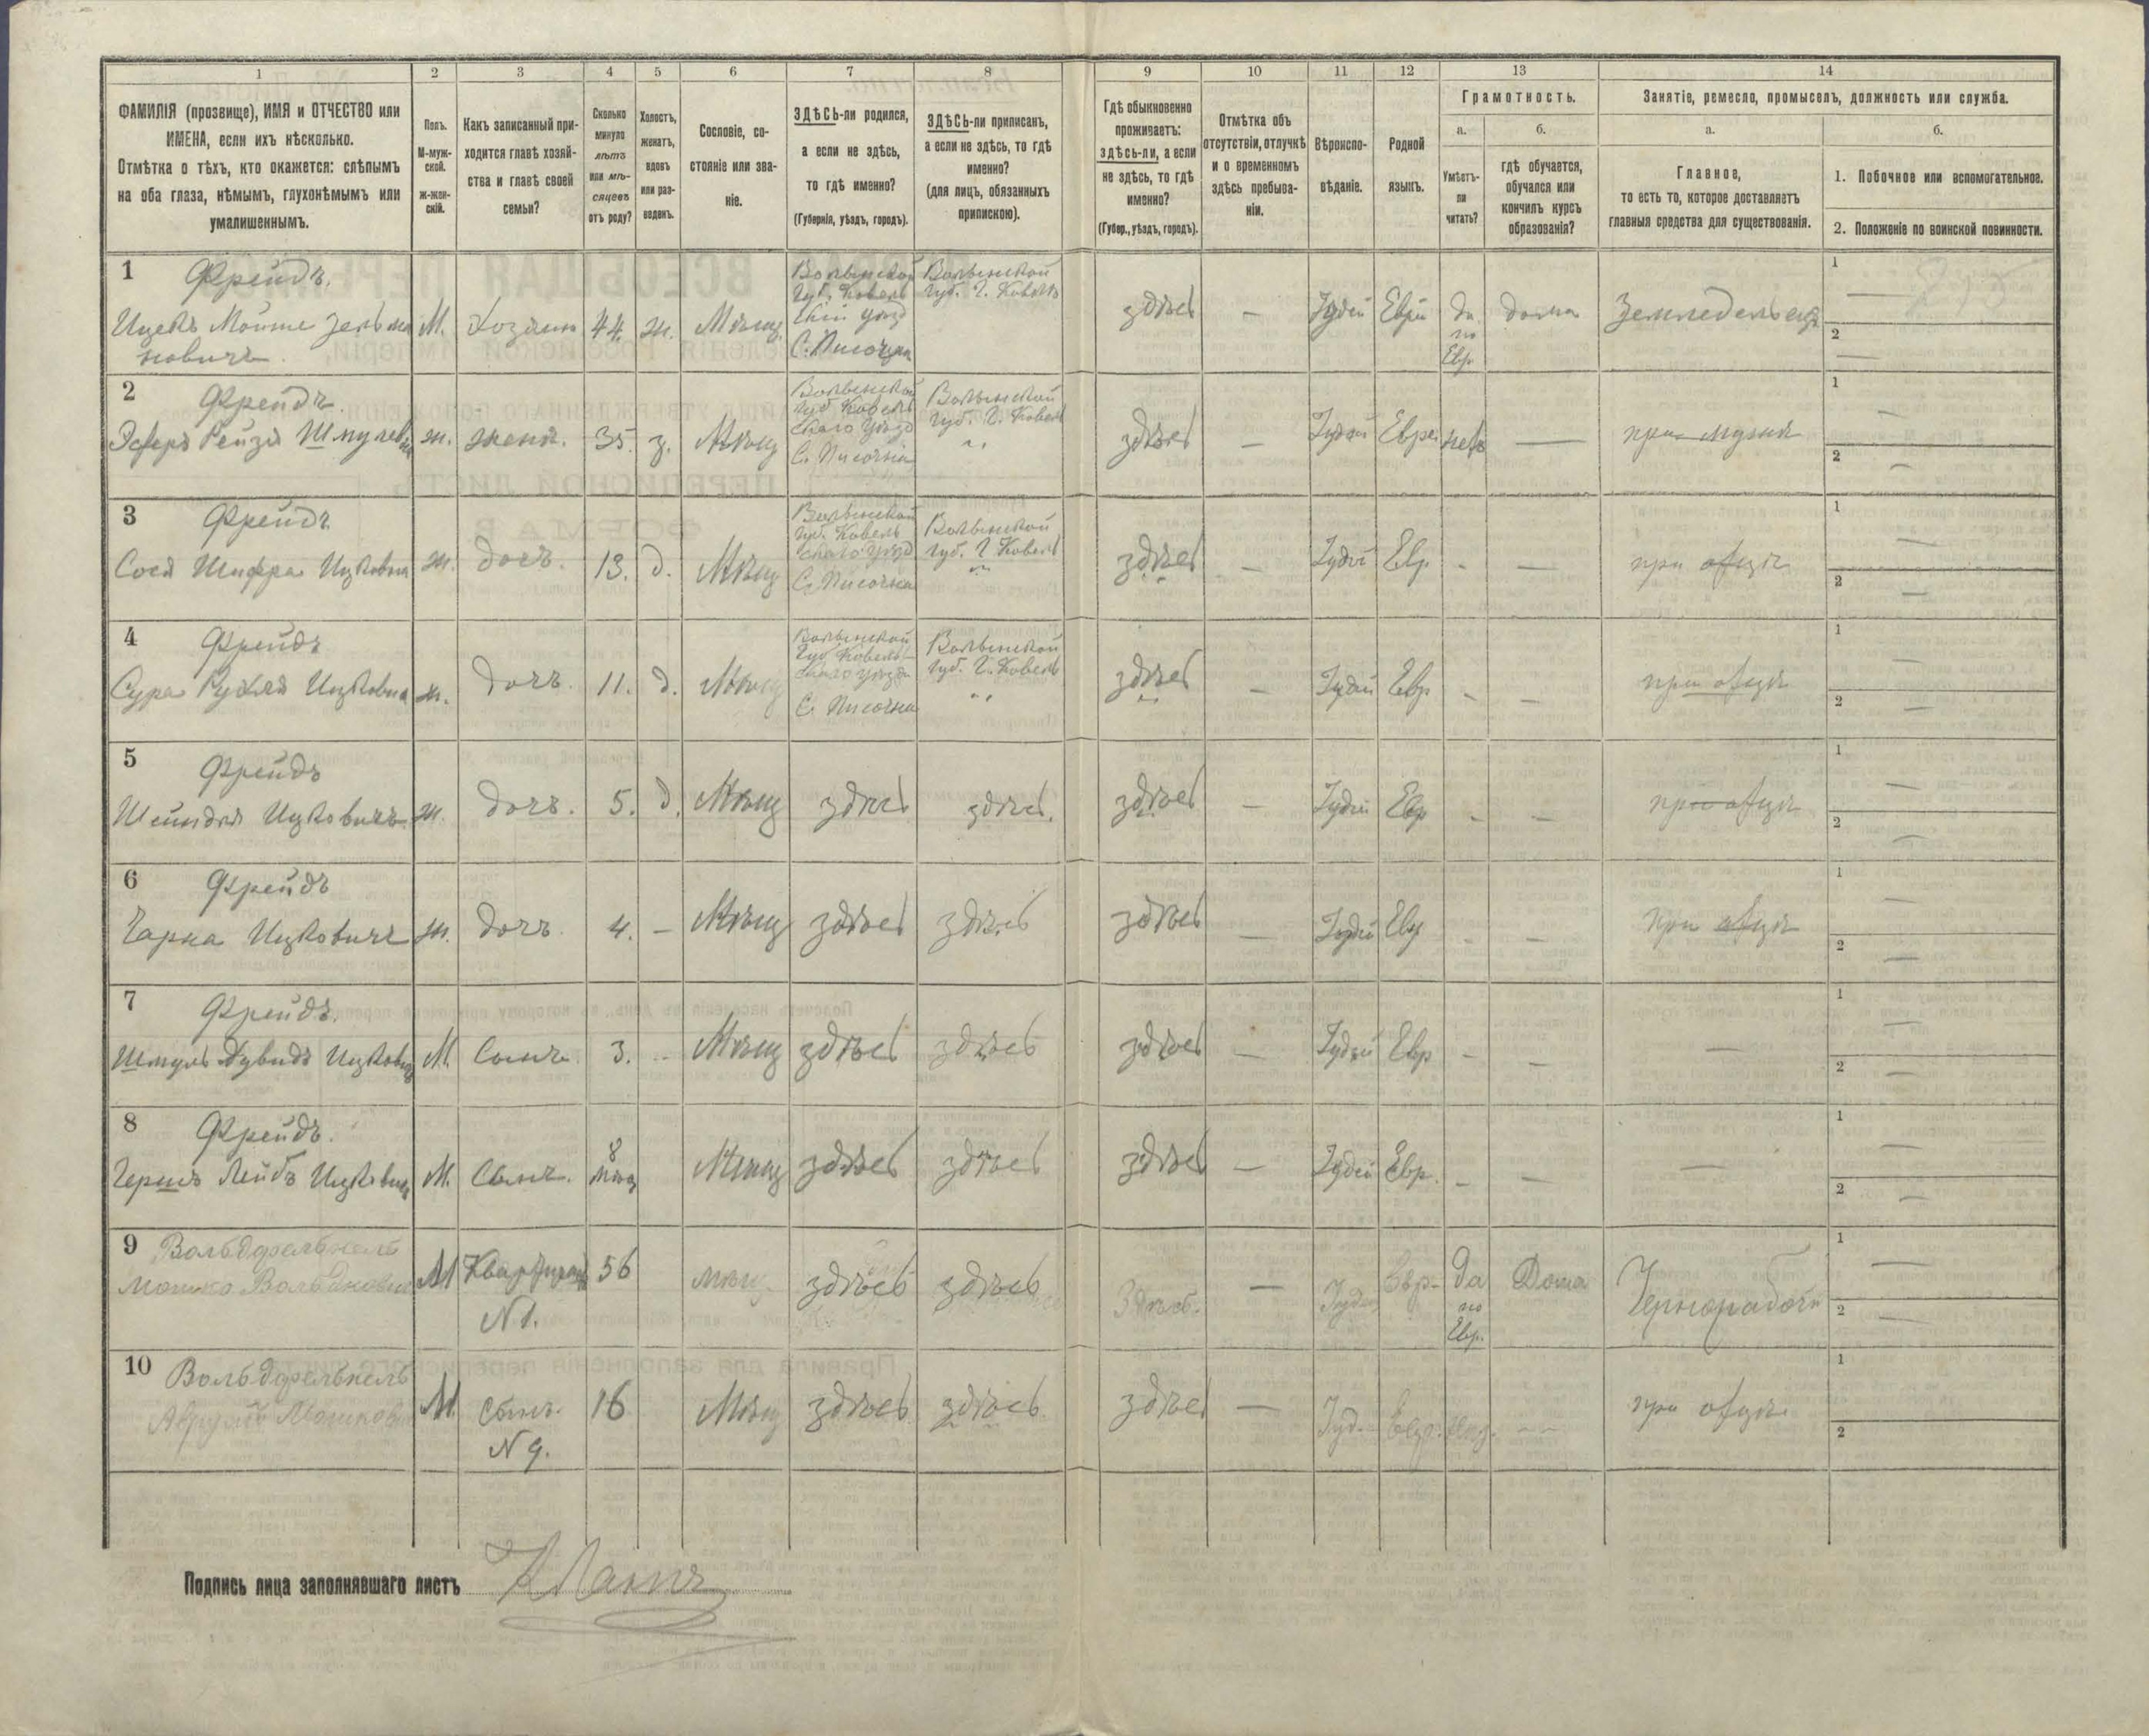 1 2 3 4 5 6 7 8 9 10 11 12 13 14
ФАМИЛІЯ (прозвище), ИМЯ и ОТЧЕСТВО или
ИМЕНА, если ихъ нѣсколько.
Отмѣтка о тѣхъ, кто окажется: слѣпымъ
на оба глаза, нѣмымъ, глухонѣмымъ или
умалишеннымъ.
Полъ.
М-муж-
ской.
ж-жен-
скій.
Какъ записанный при-
ходится главѣ хозяй-
ства и главѣ своей
семьи?
Сколько
минуло
лѣтъ
или мѣ-
сяцевъ
отъ роду?
Холостъ,
женатъ,
вдовъ
или раз-
веденъ.
Сословіе, со-
стояніе или зва-
ніе.
ЗДѢСЬ-ли родился,
а если не здѣсь,
то гдѣ именно?
(Губернія, уѣздъ, городъ).
ЗДѢСЬ-ли приписанъ,
а если не здѣсь, то гдѣ
именно?
(для лицъ, обязанныхъ
припискою).
Гдѣ обыкновенно
проживаетъ:
здѣсь-ли, а если
не здѣсь, то гдѣ
именно?
(Губер., уѣздъ, городъ).
Отмѣтка объ
отсутствіи, отлучкѣ
и о временномъ
здѣсь пребыва-
ніи.
Вѣроиспо-
вѣданіе.
Родной
языкъ.
Грамотность.
а.
Умѣетъ-
ли
читать?
б.
гдѣ обучается,
обучался или
кончилъ курсъ
образованія?
Занятіе, ремесло, промыселъ, должность или служба.
а.
Главное,
то есть то, которое доставляетъ
главныя средства для существованія.
б.
1. Побочное или вспомогательное.
2. Положеніе по воинской повинности.
1 Фрейдъ.
Ицекъ Мойше Зельма
новичъ
М. Хозяин 44. ж. Мѣщ.
Волынской
Губ. Ковель
Скій уѣзд
С. Писочна
Волынской
губ. Г. Ковель
здѣсь — Іудей Еврей
да
по
Евр.
дома Земледелецъ
1 —
2 —
2 Фрейдъ.
Эсферъ Рейзя Шмулевна ж. жена. 35. з. Мѣщ
Волынской
губ. Ковель
скаго уѣзд
С. Писочна
Волынской
губ. Г. Ковель
здѣсь — Іудей Евре нетъ — при мужѣ
1 —
2 —
3 Фрейдъ
Сося Шифра Ицковна ж. дочъ. 13. д. Мѣщ
Волынской
губ. Ковель
скаго уѣзд
С. Писочна
Волынской
губ. Г Ковель
здѣсь — Іудей Евр. - — при отцѣ
1 —
2 —
4 Фрейдъ
Сура Рухля Ицковна ж. дочъ. 11. д. Мѣщ
Волынской
Губ. Ковель-
скаго уѣзда
С. Писочна
Волынской
губ. Г. Ковель
здѣсь — Іудей Евр - — при отцѣ
1 —
2 —
5 Фрейдъ
Шейндля Ицковичъ ж. дочъ. 5. д. Мѣщ здѣсь здѣсь. здѣсь — Іудей Евр - — при отцѣ
1 —
2 —
6 Фрейдъ
Чарна Ицковичъ ж. дочъ. 4. — Мѣщ здѣсь здѣсь здѣсь — Іудей Евр - — при отцѣ
1 —
2 —
7 Фрейдъ.
Шмуль Дувидъ Ицкович М. Сынъ. 3. - Мѣщ здѣсь здѣсь здѣсь — Іудей Евр - — —
1 —
2 —
8 Фрейдъ.
Гершъ Лейбъ Ицкович М. Сынъ. 8
мѣсяц
Мѣщ здѣсь здѣсь здѣсь — Іудей Евр. - — —
1 —
2 —
9
Мошко
М Квартирант
N 1.
56 мѣщ. здѣсь здѣсь Здѣсь. — Іудей Евр-
да
по
Евр.
Дома Чернорабочій
1 —
2 —
10
Мошкович
М сынъ.
N 9.
16 Мѣщ здѣсь здѣсь здѣсь — Іуд. Евр. при отцѣ.
1
2
Подпись лица заполнявшаго листъ